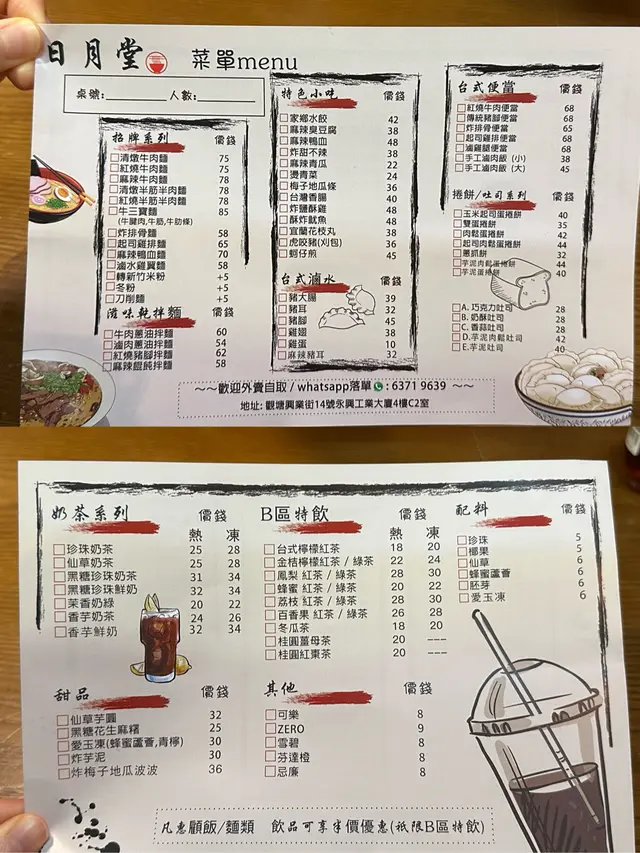 日月堂 菜單menu
桌號:________ 人數:________
招牌系列 價錢
清燉牛肉麵 75
紅燒牛肉麵 75
麻辣牛肉麵 78
清燉半筋半肉麵 78
紅燒半筋半肉麵 78
牛三寶麵 85
(牛腱肉,牛筋,牛肋條)
炸排骨麵 58
起司雞排麵 65
麻辣鴨血麵 70
滷水雞翼麵 58
轉新竹米粉 +5
冬粉 +5
刀削麵 +5
滋味乾拌麵 價錢
牛肉蔥油拌麵 60
滷肉蔥油拌麵 54
紅燒豬腳拌麵 62
麻辣餛飩拌麵 58
特色小味 價錢
家鄉水餃 42
麻辣臭豆腐 38
麻辣鴨血 48
炸甜不辣 38
麻辣青瓜 22
燙青菜 24
梅子地瓜條 36
台灣香腸 40
炸鹽酥雞 48
酥炸魷魚 48
宜蘭花枝丸 38
虎咬豬(刈包) 36
蚵仔煎 45
台式滷水 價錢
豬大腸 39
豬耳 32
豬腳 45
雞翅 38
雞蛋 10
麻辣豬耳 32
台式便當 價錢
紅燒牛肉便當 68
傳統豬腳便當 68
炸排骨便當 65
起司雞排便當 68
滷雞腿便當 68
手工滷肉飯 (小) 38
手工滷肉飯 (大) 45
捲餅/吐司系列 價錢
玉米起司蛋捲餅 40
雙蛋捲餅 35
肉鬆蛋捲餅 42
起司肉鬆蛋捲餅 44
蔥抓餅 32
芋泥肉鬆蛋捲餅 44
芋泥蛋捲餅 40
A. 巧克力吐司 28
B. 奶酥吐司 28
C. 香蒜吐司 28
D. 芋泥肉鬆吐司 42
E. 芋泥吐司 40
~~歡迎外賣自取 / whatsapp落單 : 6371 9639 ~~
地址: 觀塘興業街14號永興工業大廈4樓C2室
奶茶系列 價錢
熱 凍
珍珠奶茶 25 28
仙草奶茶 25 28
黑糖珍珠奶茶 31 34
黑糖珍珠鮮奶 32 34
茉香奶綠 20 22
香芋奶茶 24 26
香芋鮮奶 32 34
甜品 價錢
仙草芋圓 32
黑糖花生麻糬 25
愛玉凍(蜂蜜蘆薈,青檸) 30
炸芋泥 30
炸梅子地瓜波波 36
B區特飲 價錢
熱 凍
台式檸檬紅茶 18 20
金桔檸檬紅茶 / 綠茶 22 24
鳳梨 紅茶 / 綠茶 28 30
蜂蜜 紅茶 / 綠茶 20 22
荔枝 紅茶 / 綠茶 28 30
百香果 紅茶 / 綠茶 26 28
冬瓜茶 18 20
桂圓薑母茶 20 ---
桂圓紅棗茶 20 ---
其他 價錢
可樂 8
ZERO 9
雪碧 8
芬達橙 8
忌廉 8
配料 價錢
珍珠 5
椰果 5
仙草 6
蜂蜜蘆薈 6
胚芽 6
愛玉凍 6
凡惠顧飯/麵類 飲品可享半價優惠(祇限B區特飲)